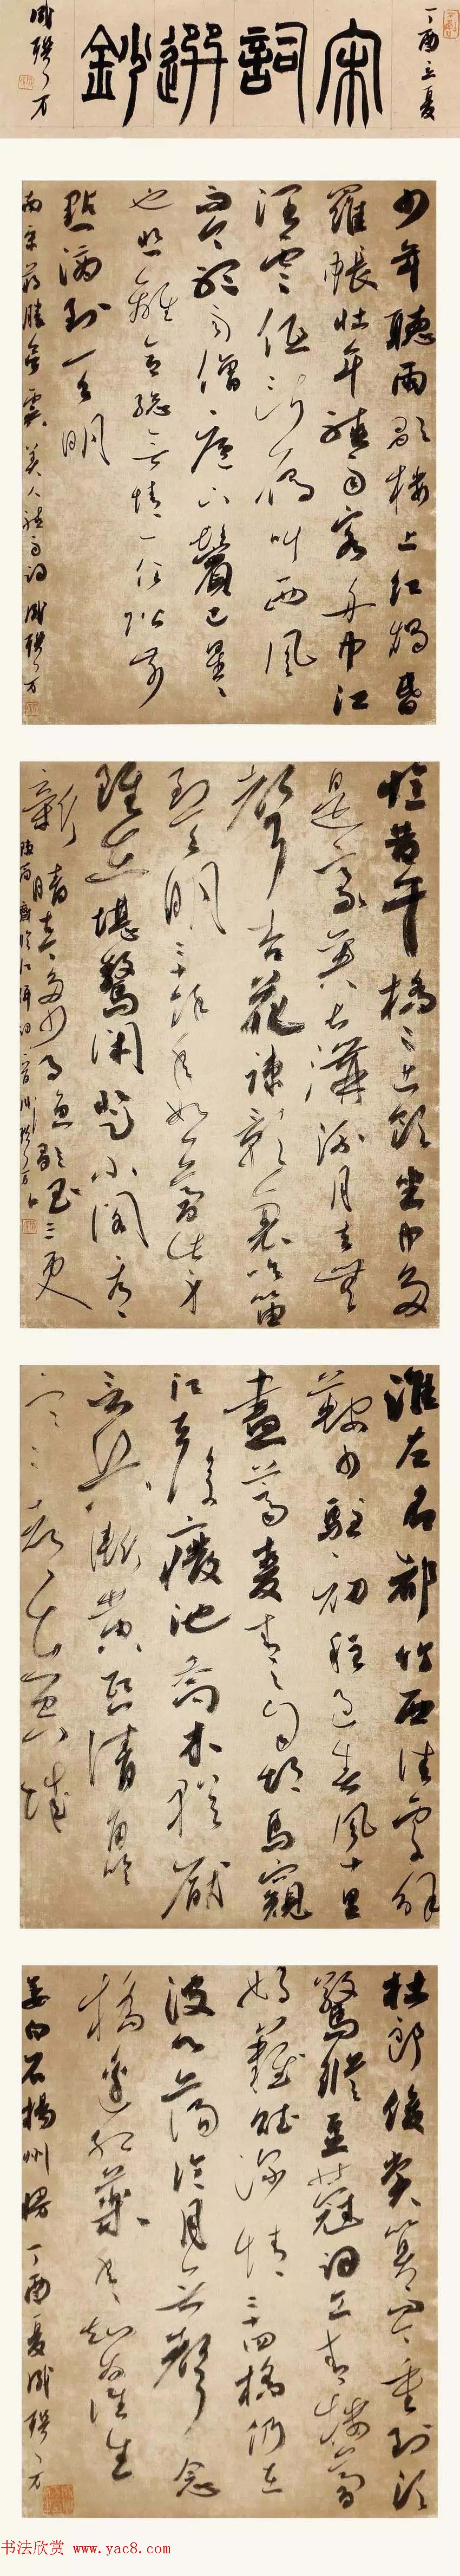 丁酉立夏
宋詞選鈔
少年聽雨歌樓上紅燭昏
羅帳壯年聽雨客舟中江
闊雲低斷雁叫西風
而今聽雨僧廬下鬢已星星
也悲歡離合總無情一任階前
點滴到天明
南宋蔣勝欲虞美人聽雨詞
憶昔午橋橋上飲坐中多
是豪英長溝流月去無
聲杏花疎影裏吹笛
到天明二十餘年如一夢此身
雖在堪驚閑登小閣看
新晴古今多少事漁唱起三更
陳簡齋臨江仙詞
淮左名都竹西佳處解
鞍少駐初程過春風十里
盡薺麥青青自胡馬窺
江去後廢池喬木猶厭
言兵漸黃昏清角吹
寒都在空城
杜郎俊賞算而今重到須
驚縱豆蔻詞工青樓夢
好難賦深情二十四橋仍在
波心蕩冷月無聲念
橋邊紅藥年年知為誰生
姜白石揚州慢丁酉夏
书法欣赏 www.yac8.com